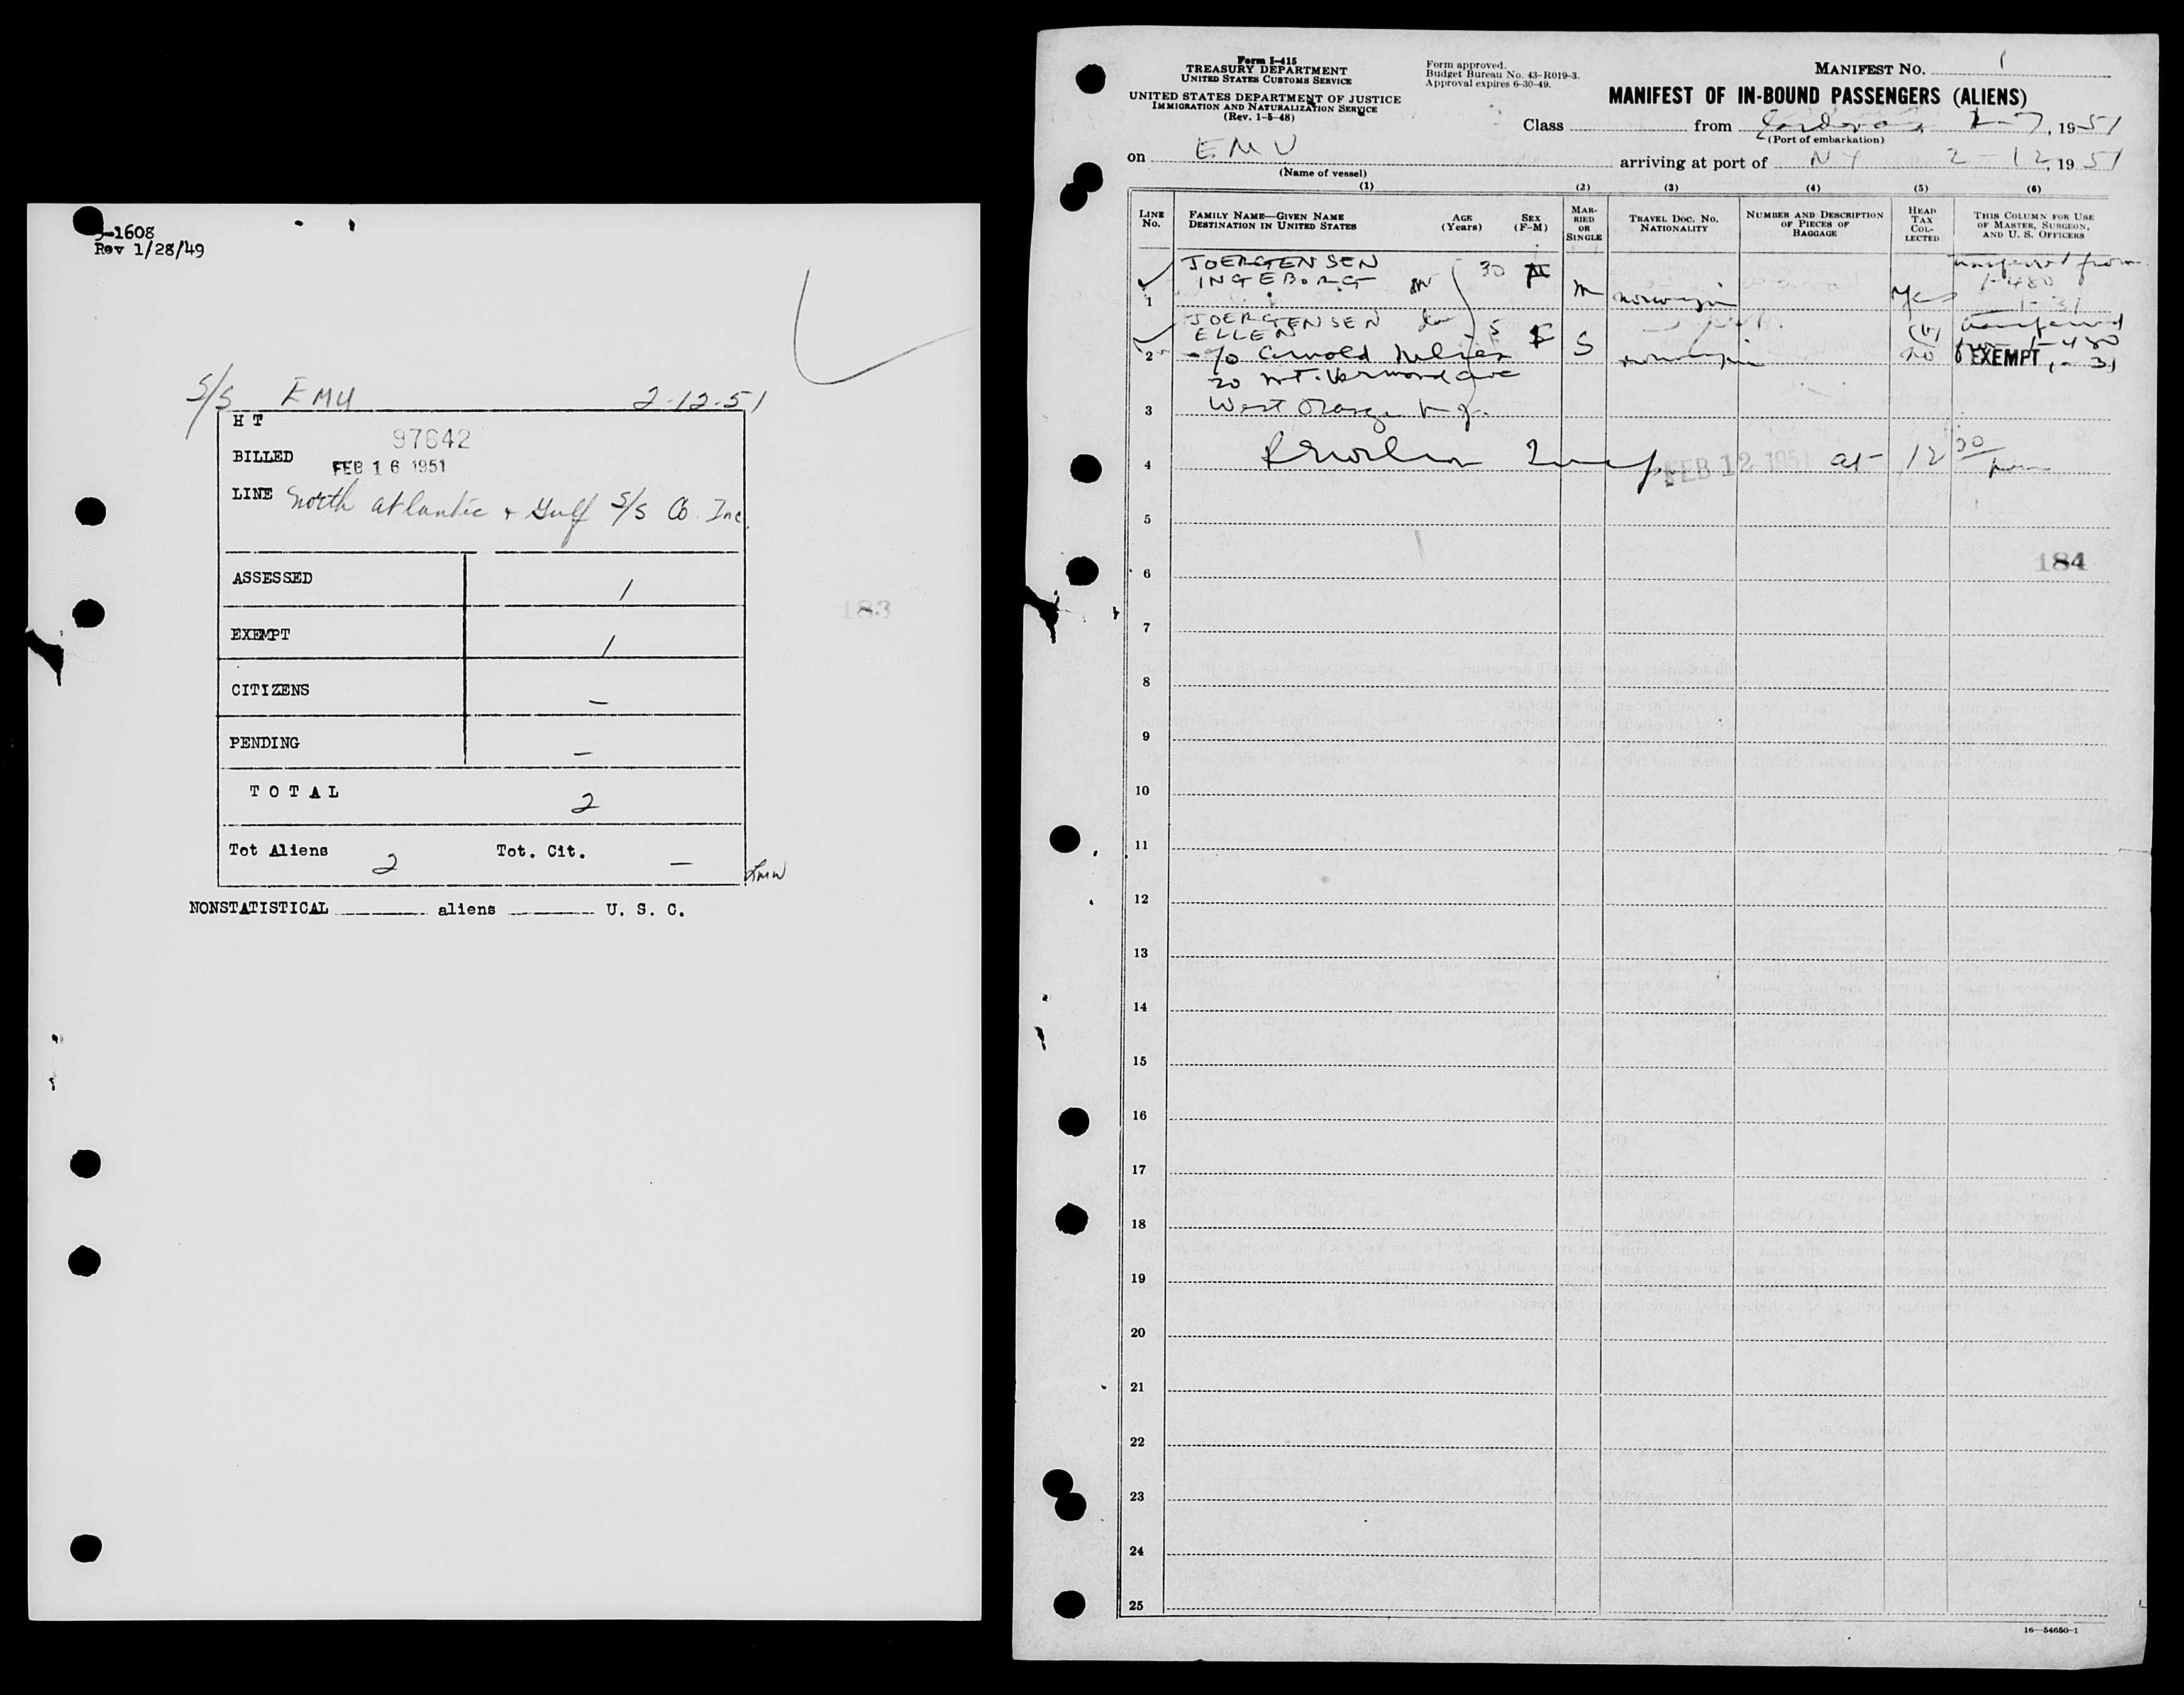 -1608
Rev 1/28/49
S/S EMU 2-12-51
H T
97642
BILLED FEB 16 1951
LINE North Atlantic & Gulf S/S Co. Inc.
ASSESSED 1
EXEMPT 1
CITIZENS –
PENDING –
TOTAL 2
Tot Aliens 2 Tot. Cit. –
NONSTATISTICAL aliens U. S. C.
183
Form I-415
TREASURY DEPARTMENT
UNITED STATES CUSTOMS SERVICE
UNITED STATES DEPARTMENT OF JUSTICE
IMMIGRATION AND NATURALIZATION SERVICE
(Rev. 1-5-48)
Form approved.
Budget Bureau No. 43-R019-3.
Approval expires 6-30-49.
MANIFEST NO. 1
MANIFEST OF IN-BOUND PASSENGERS (ALIENS)
Class from , 1951
(Port of embarkation)
on EMU arriving at port of NY 2-12, 1951
(Name of vessel)
(1) (2) (3) (4) (5) (6)
LINE No.
FAMILY NAME—GIVEN NAME
DESTINATION IN UNITED STATES
AGE (Years)
SEX (F-M)
MARRIED OR SINGLE
TRAVEL DOC. NO. NATIONALITY
NUMBER AND DESCRIPTION OF PIECES OF BAGGAGE
HEAD TAX COLLECTED
THIS COLUMN FOR USE OF MASTER, SURGEON, AND U. S. OFFICERS
JOERGENSEN
1 INGEBORG 30 M norwegian yes
from
I-480
1-31
JOERGENSEN
ELLEN 5 F S norwegian no
transferred
from I-480
2 c/o Arnold
EXEMPT 1-31
20 Mt. Vernon Ave
3 West Orange N.J.
4 FEB 12 1951 at 12 30 pm
5
184
6
7
8
9
10
11
12
13
14
15
16
17
18
19
20
21
22
23
24
25
16—54650-1